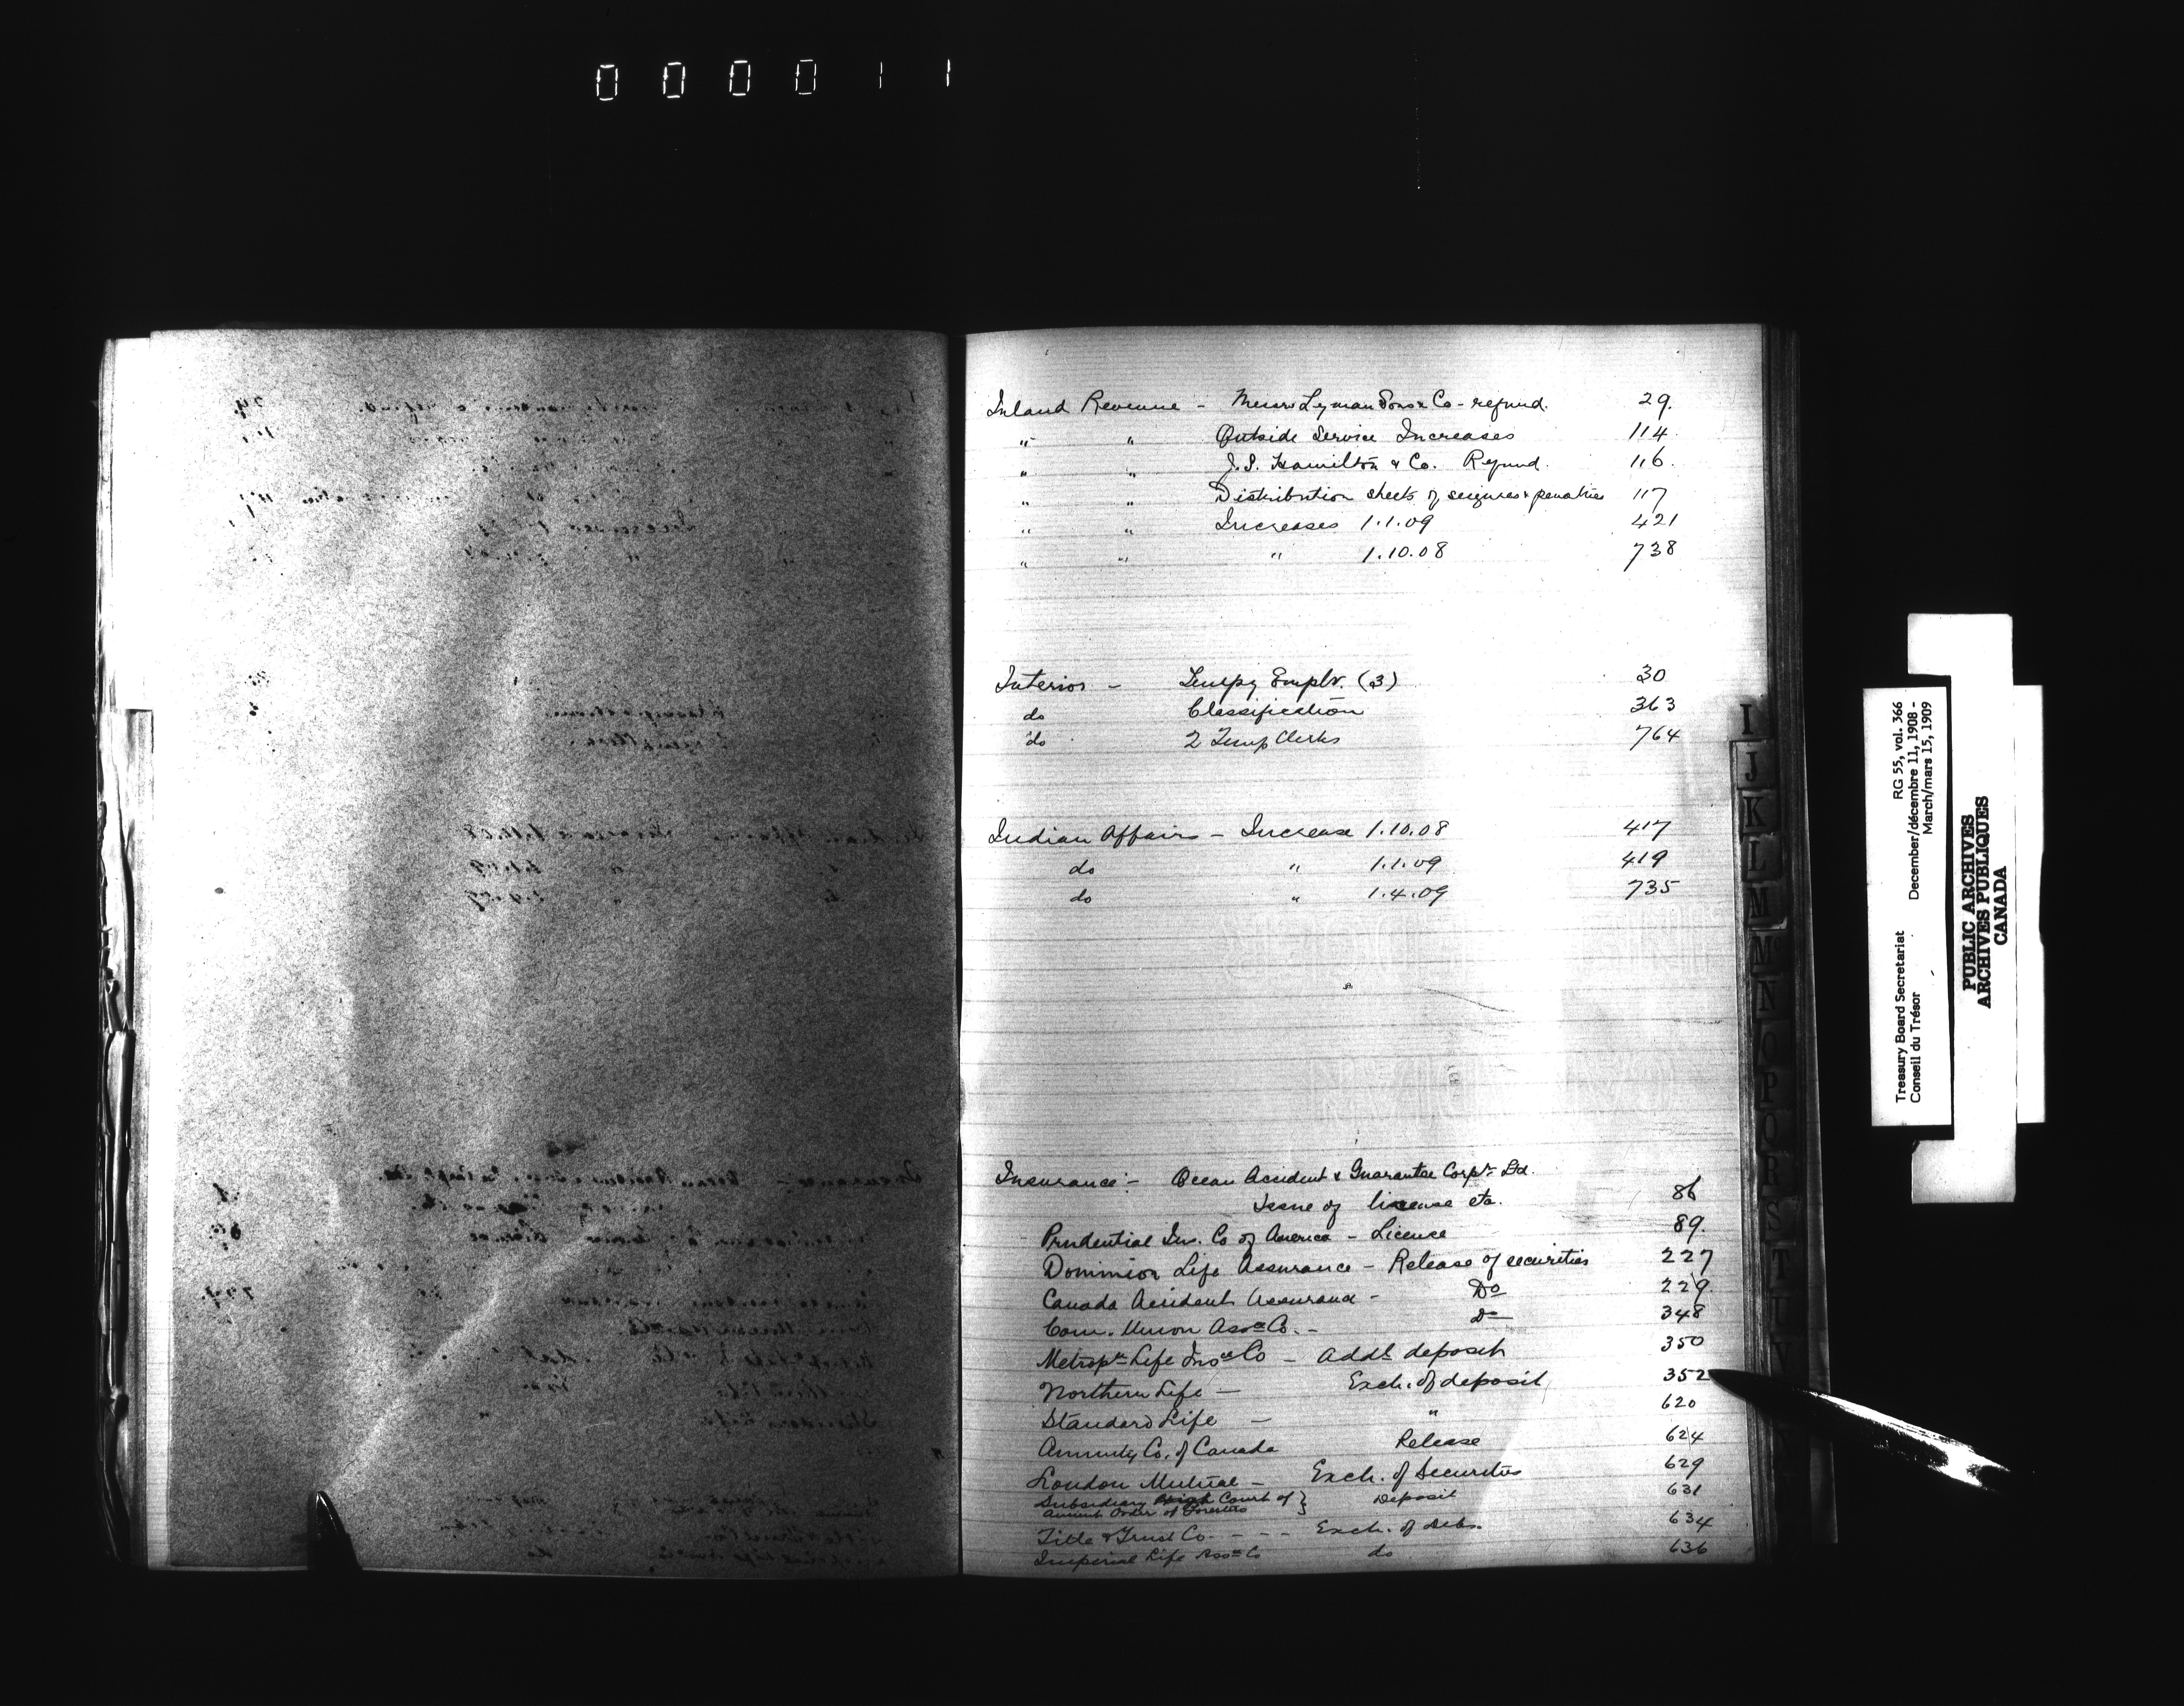 000011
Inland Revenue - Messrs Lyman Sons & Co - refund. 29.
" " Outside Service Increases 114
" " J.S. Hamilton & Co. Refund. 116.
" " Distribution sheets of seizures & penalties 117
" " Increases 1.1.09 421
" " " 1.10.08 738
Interior - Tempy Emplt. (3) 30
do Classification 363
do 2 Temp Clerks 764
Indian Affairs - Increase 1.10.08 417
do " 1.1.09 419
do " 1.4.09 735
Insurance - Ocean Accident & Guarantee Corpn Ltd.
Issue of license etc. 86
Prudential Ins. Co of America - License 89.
Dominion Life Assurance - Release of securities 227
Canada Accident Assurance - Do 229.
Com. Union Assce Co. - Do 348
Metropn Life Insce Co - Addl deposit 350
Northern Life - Exch. of deposit 352
Standard Life - " 620
Annuity Co. of Canada Release 624
London Mutual - Exch. of Securities 629
Subsidiary High Court of } Deposit 631
Ancient Order of Foresters
Title & Trust Co. - - - Exch. of Debs. 634
Imperial Life Assce Co do 636
I
J
K
L
M
M
N
O
P
Q
R
S
T
U
V
Treasury Board Secretariat RG 55, vol. 366
Conseil du Trésor December/décembre 11, 1908 -
March/mars 15, 1909
PUBLIC ARCHIVES
ARCHIVES PUBLIQUES
CANADA